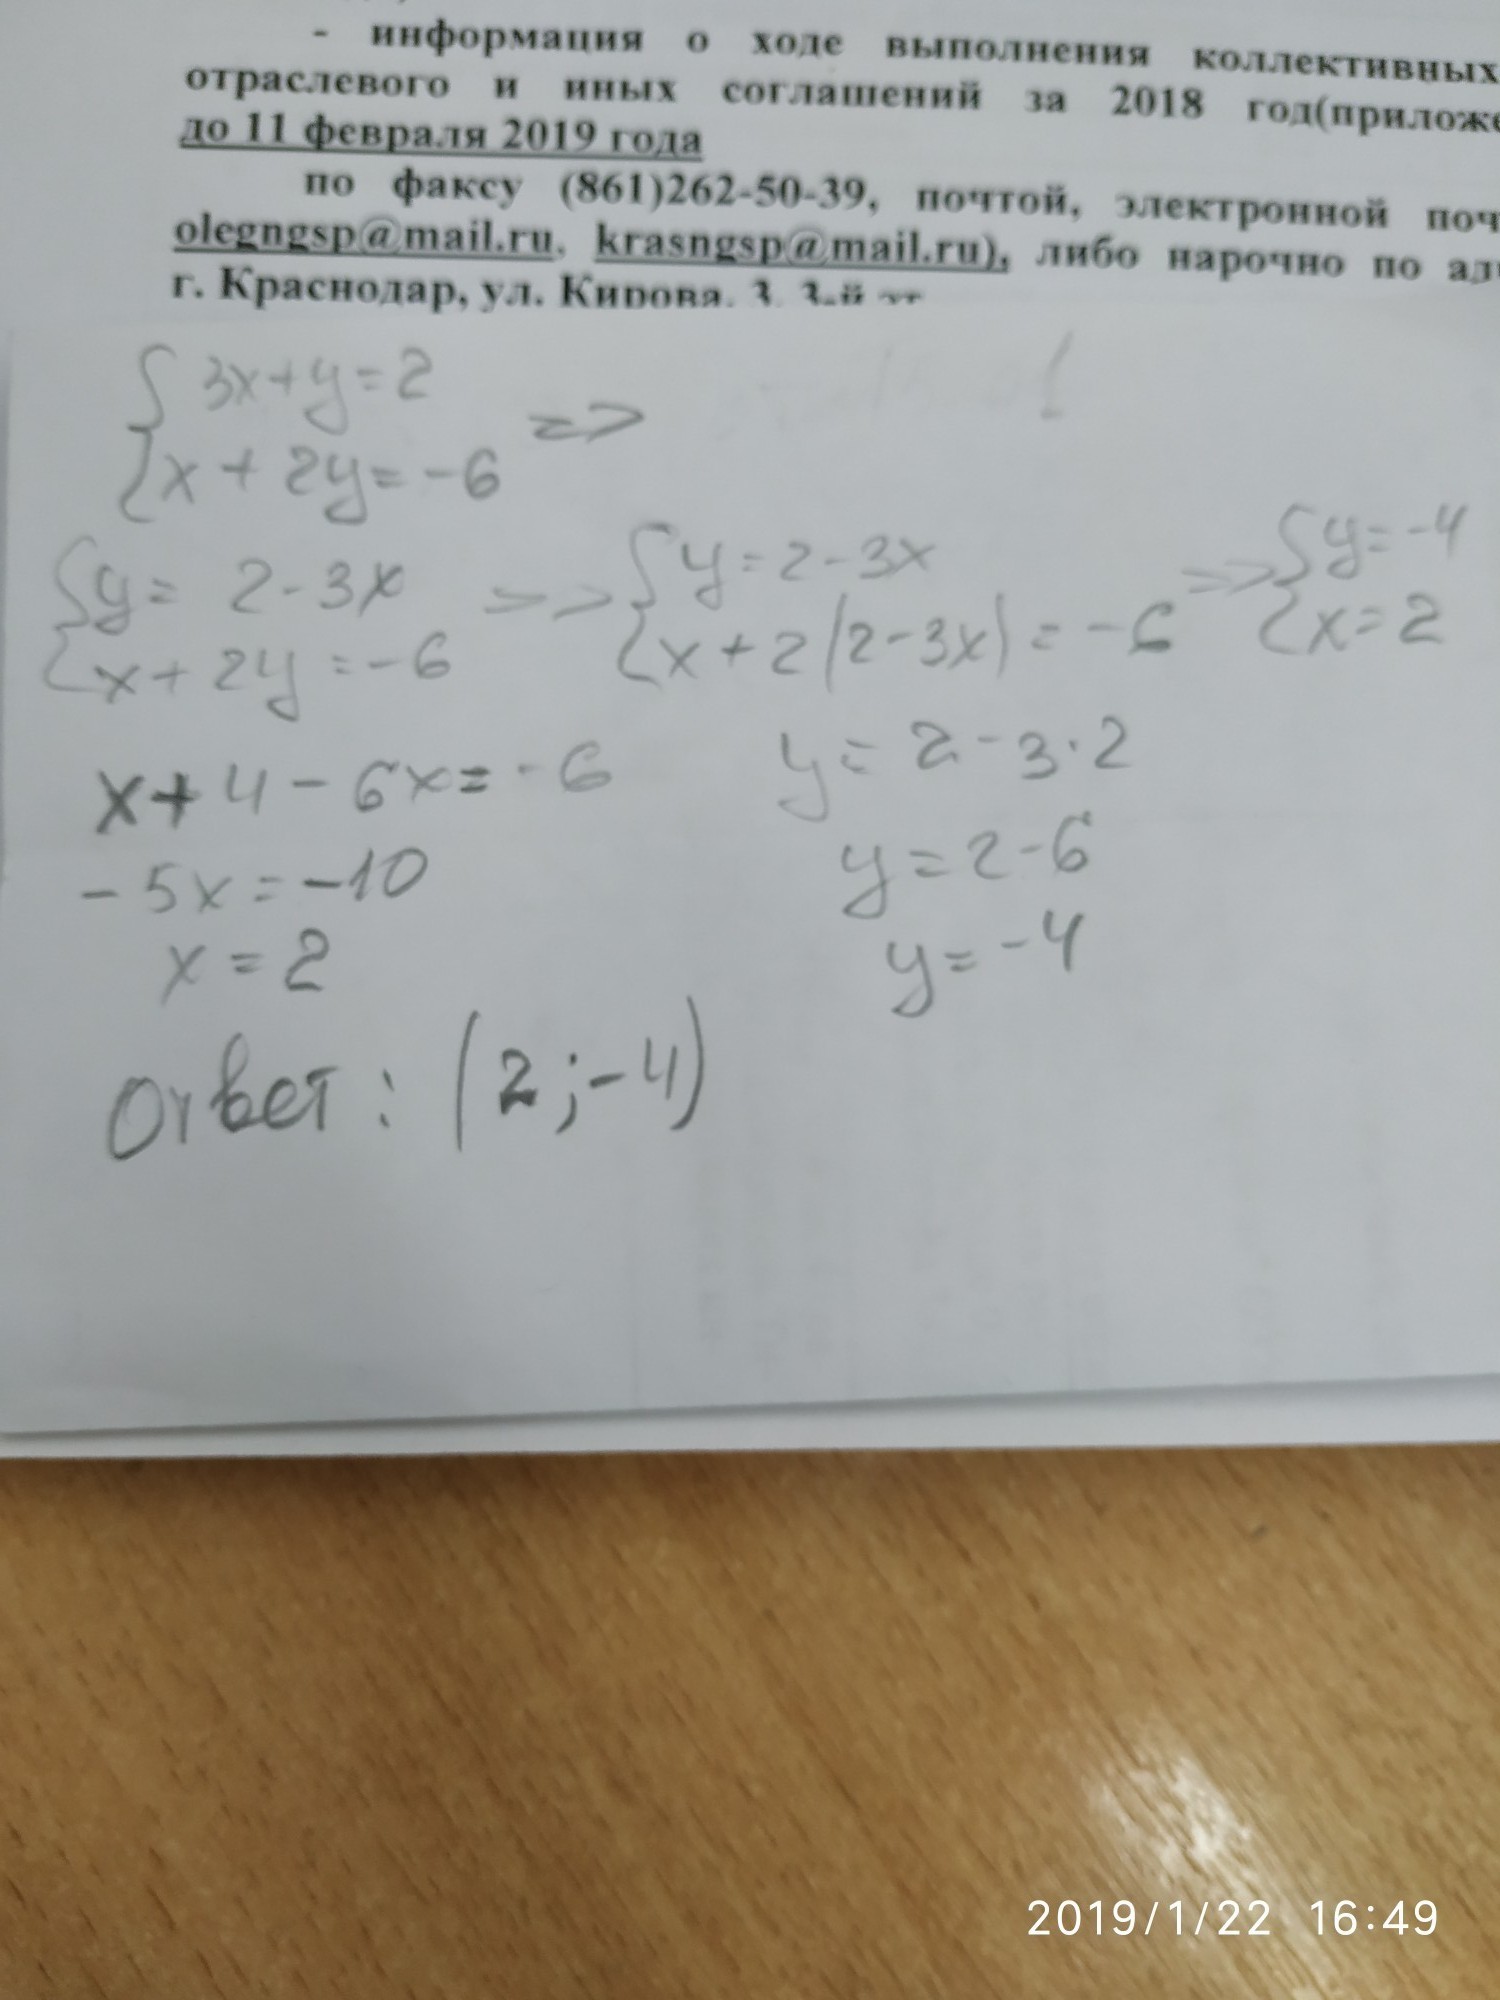 - информация о ходе выполнения коллективных
отраслевого и иных соглашений за 2018 год(приложе
до 11 февраля 2019 года
по факсу (861)262-50-39, почтой, электронной поч
olegngsp@mail.ru, krasngsp@mail.ru), либо нарочно по ад
г. Краснодар, ул. Кирова, 3, 3-й эт
{ 3x+y=2
{ x+2y=-6 =>
{ y=2-3x => { y=2-3x => { y=-4
{ x+2y=-6 { x+2(2-3x)=-6 { x=2
x+4-6x=-6 y=2-3·2
-5x=-10 y=2-6
x=2 y=-4
Ответ: (2;-4)
2019/1/22 16:49